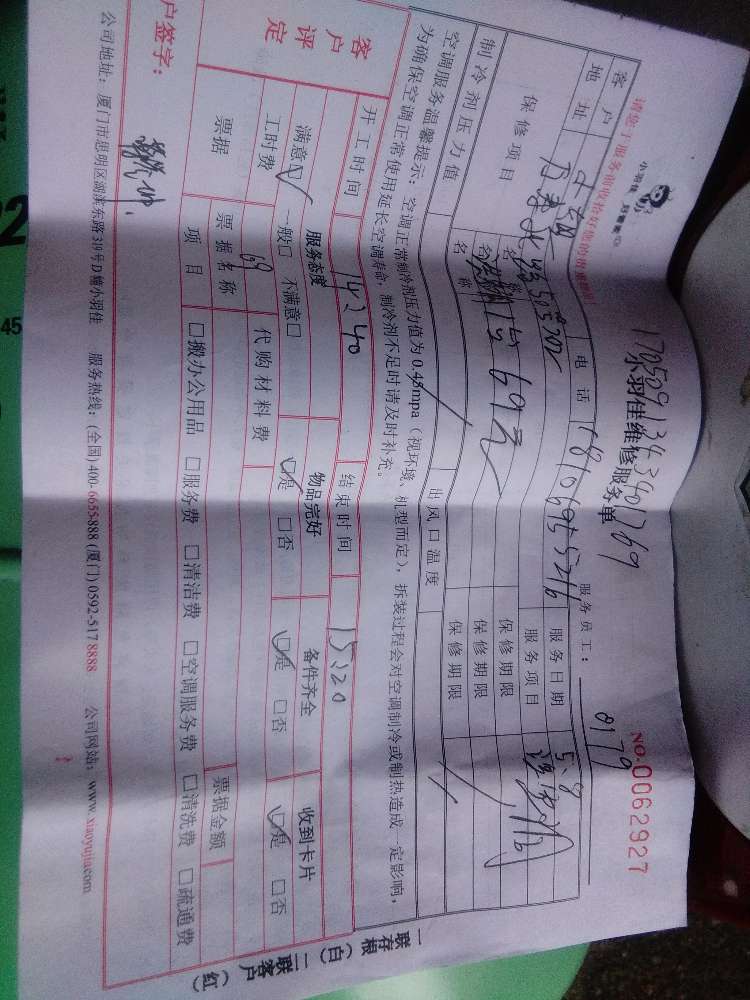 请您于服务前收拾好您的贵重物品
小羽佳
1705091343401269
小羽佳维修服务单
NO.0062927
服务员工：0179
客户 电话 服务日期 5、8
地址 服务项目
保修项目 名称 69元 保修期限
名称 保修期限
制冷剂压力值 出风口温度 保修期限
空调服务温馨提示：空调正常制冷剂压力值为0.45mpa（视环境、机型而定），拆装过程会对空调制冷或制热造成一定影响，
为确保空调正常使用延长空调寿命，制冷剂不足时请及时补充。
开工时间 14:40 结束时间 15:20
客户评定
服务态度 物品完好 备件齐全 收到卡片
满意☑ 一般□ 不满意□ ☑是 □否 ☑是 □否 ☑是 □否
工时费 69 代购材料费
票据 票据名称 票据金额
项目 □搬办公用品 □服务费 □清洁费 □空调服务费 □清洗费 □疏通费
户签字：
公司地址：厦门市思明区湖滨东路319号D幢小羽佳 服务热线：(全国) 400-6655-888 (厦门) 0592-517 8888 公司网站：www.xiaoyujia.com
一联存根（白）二联客户（红）